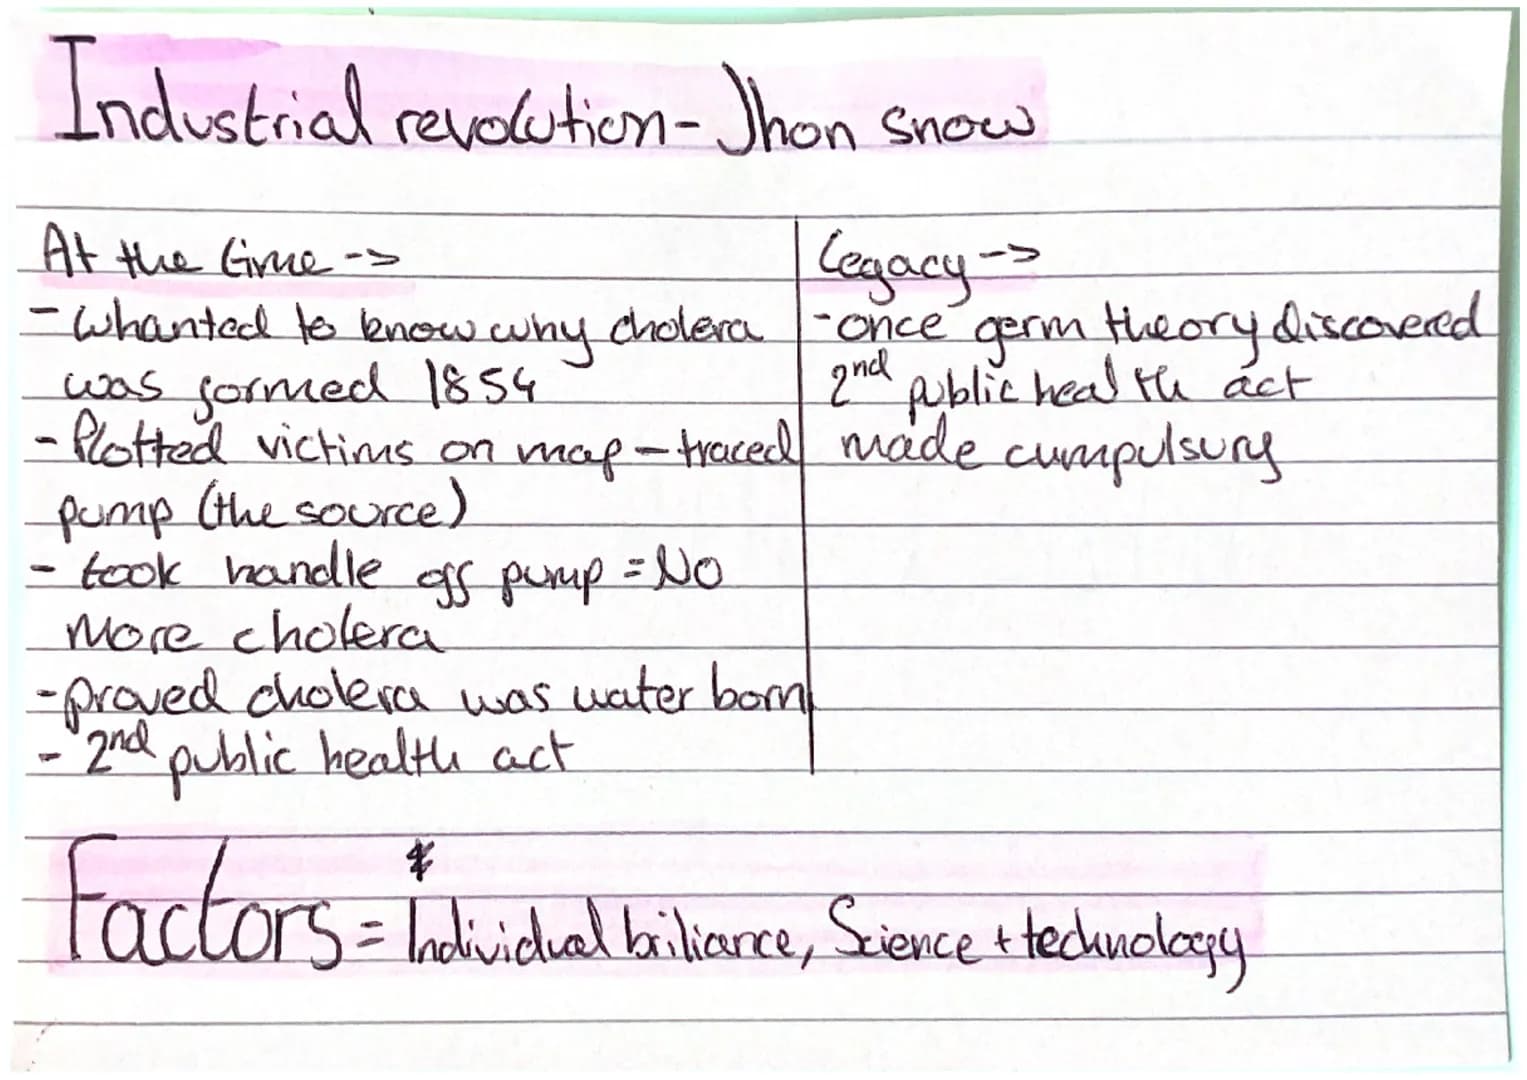 Industrial revolution - Jhon snow
At the time ->
- whanted to know why cholera
was formed 1854
- Plotted victims on map - traced
pump (the source)
- took handle off pump = No
more cholera
- proved cholera was water born
- 2nd public health act
Legacy ->
- once germ theory discovered
2nd public health act
made cumpulsury
*
Factors = Individual briliance, Science + technology